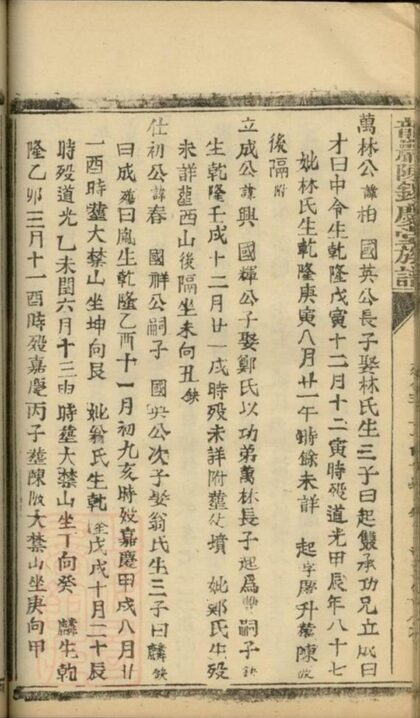 萬林公諱柏 國英公長子娶林氏生三子曰起雙承功兄立成曰
才曰中令生乾隆戊寅十二月十二寅時殁道光甲辰年八十七
妣林氏生乾隆庚寅八月廿一年時餘未詳 起字 升葬陳
後隔附
立成公諱興 國輝公子娶鄭氏以功弟萬林長子起為 嗣子
生乾隆壬戌十二月廿一戌時殁未詳附葬 墳 妣鄭氏生殁
未詳葬西山後隔坐未向丑
仕初公諱春 國群公嗣子 國英公次子娶翁氏生三子曰麟
曰成 曰 生乾隆乙酉十一月初九亥時殁嘉慶甲戌八月廿
一酉時葬大禁山坐坤向艮 妣翁氏生乾隆戊戌十月二十辰
時殁道光乙未閏六月十三申時葬大禁山坐丁向癸 麟生乾
隆乙卯三月十一酉時殁嘉慶丙子葬陳 大禁山坐庚向甲
族譜